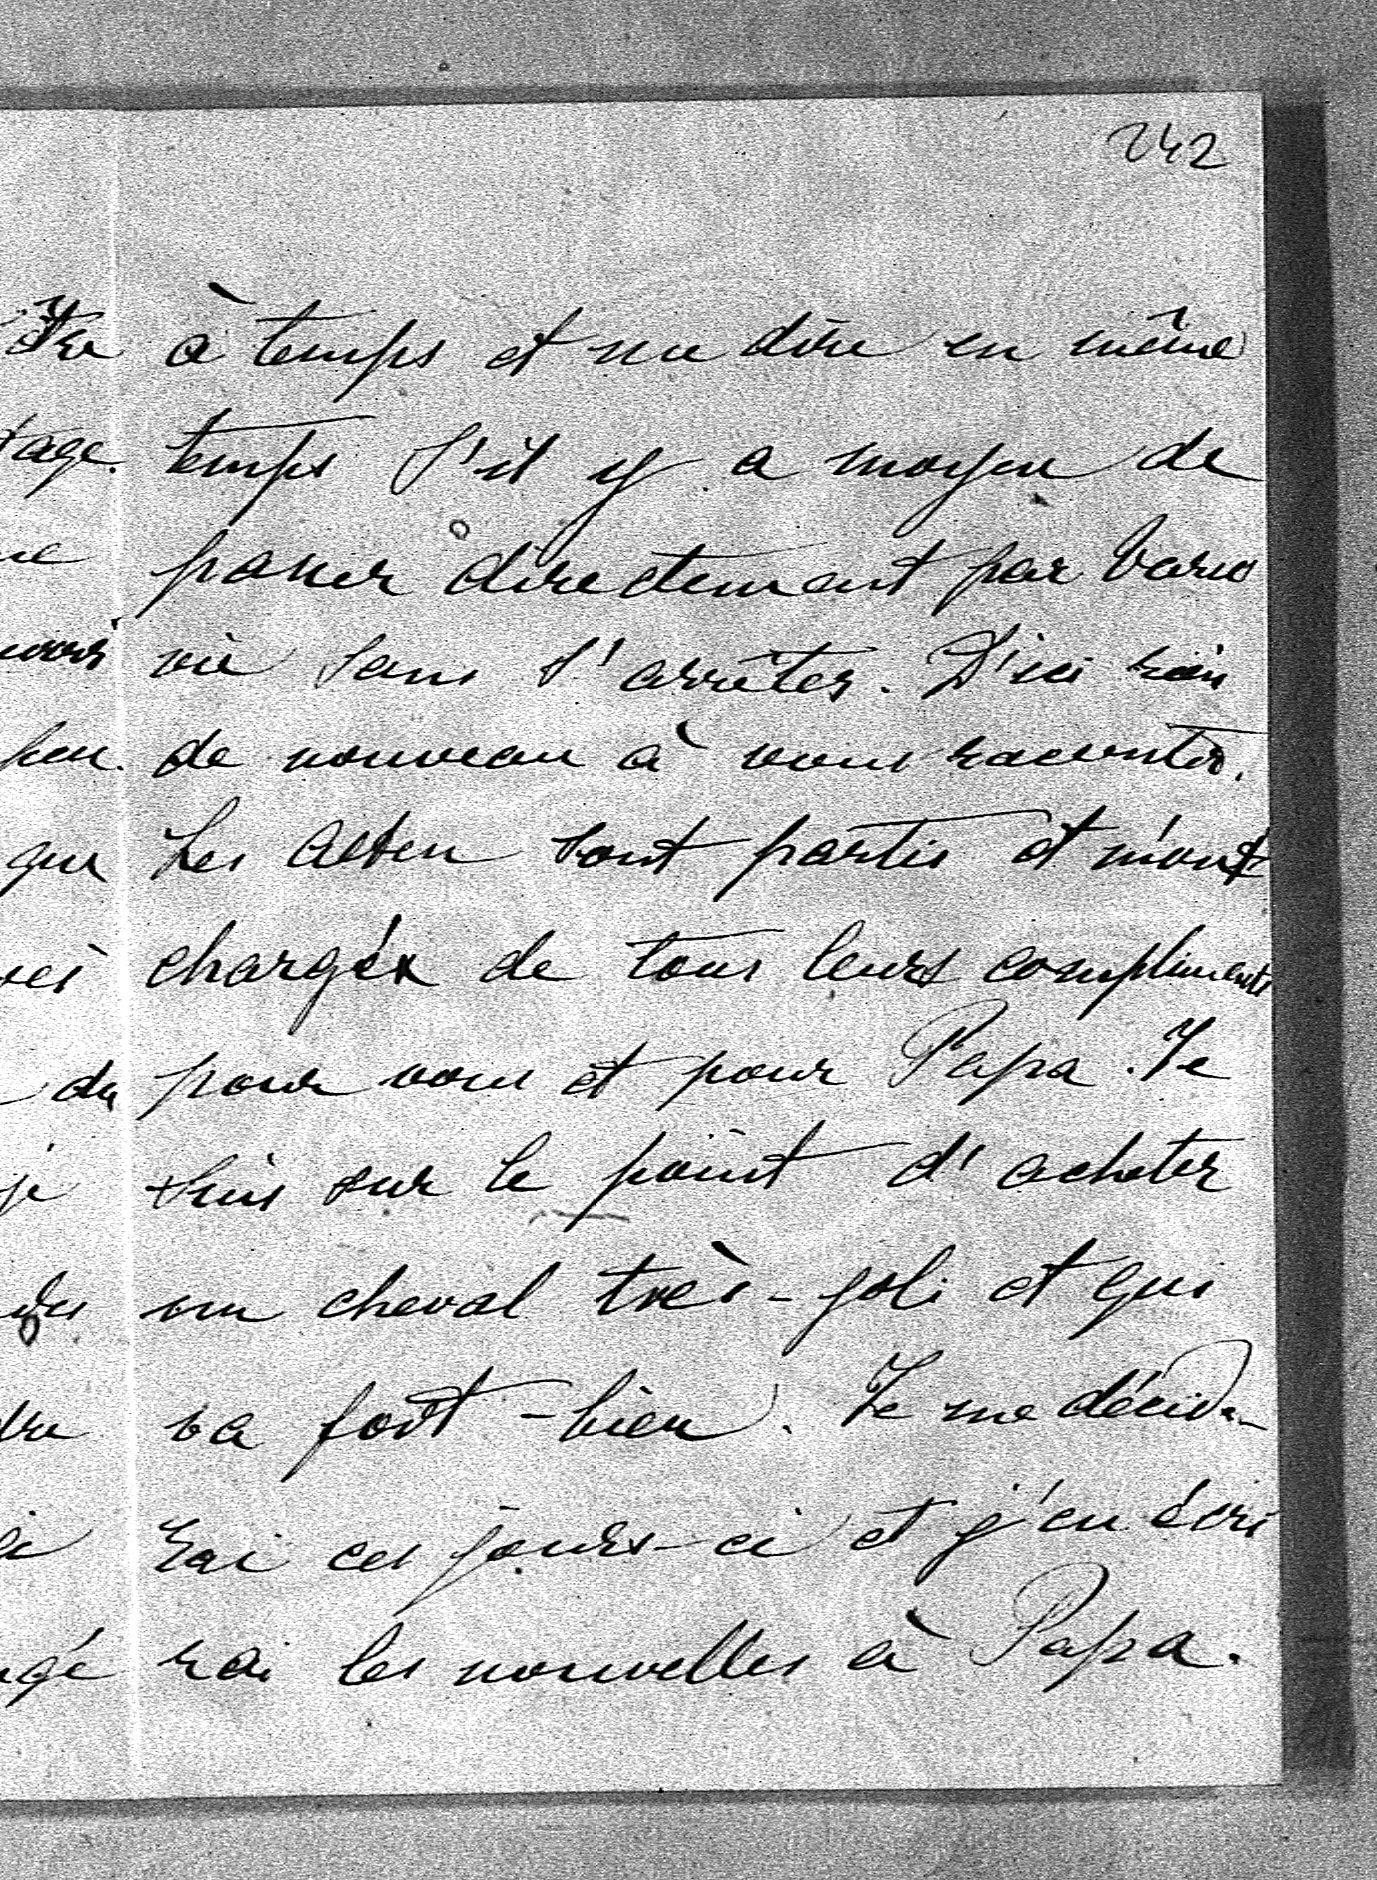 242
à temps et me dire en même
temps s'il y a moyen de
passer directement par Varso
vie sans s'arrêter. D'ici rien
de nouveau à vous raconter.
Les sont partis et m'ont
chargée de tous leurs compliments
pour vous et pour Papa. Je
suis sur le point d'acheter
un cheval très-joli et qui
va fort-bien. Je me décide-
rai ces jours-ci et j'en écri
rai les nouvelles à Papa.